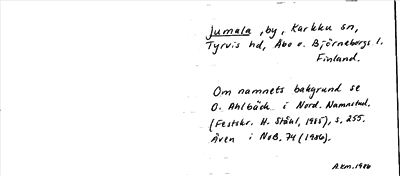 Jumala, by, Karkku sn,
Tyrvis hd, Åbo o. Björneborgs l.
Finland.
Om namnets bakgrund se
O. Ahlbäck i Nord. Namnstud.
(Festskr. H. Ståhl, 1985), s. 255.
Även i NoB. 74 (1986).
A.Km. 1986